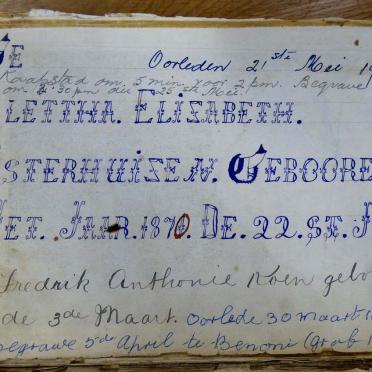 Oorleden 21ste Mei 19
Kaapstad om 5 min voor 2 pm. Begrawe
om 4:30 pm die 25ste Mei.
LETTHA. ELIZABETH.
STERHUIZEN. GEBOORE
HET. JAAR. 1870. DE. 22. ST. J
Fredrik Anthonie Koen gebo
de 3de Maart. Oorlede 30 maart 1
Begrawe 5de April te Benoni (graf 1